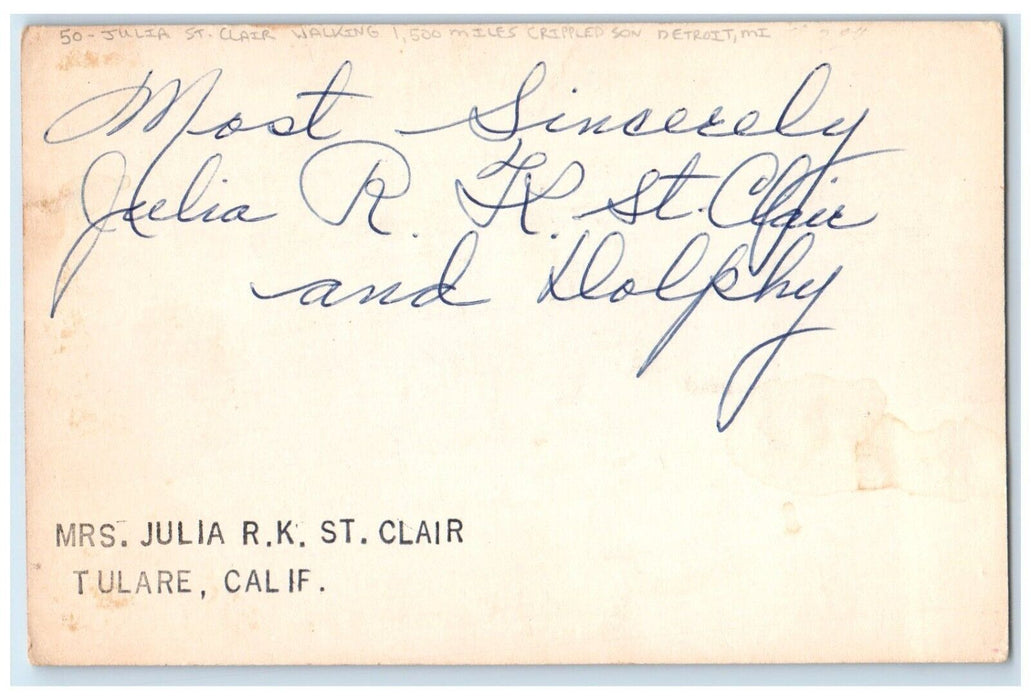 50 - JULIA ST. CLAIR WALKING 1,500 MILES CRIPPLED SON DETROIT, MI
Most Sincerely
Julia R. K. St. Clair
and Dolphy
MRS. JULIA R.K. ST. CLAIR
TULARE, CALIF.